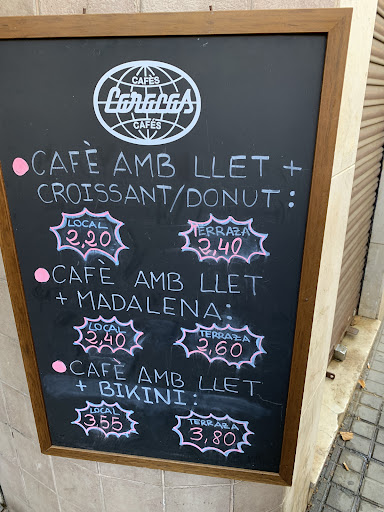 CAFÈS
Caracas
CAFÉS
CAFÈ AMB LLET +
CROISSANT/DONUT:
LOCAL TERRAZA
2,20 2,40
CAFÈ AMB LLET
+ MADALENA:
LOCAL TERRAZA
2,40 2,60
CAFÈ AMB LLET
+ BIKINI:
LOCAL TERRAZA
3,55 3,80